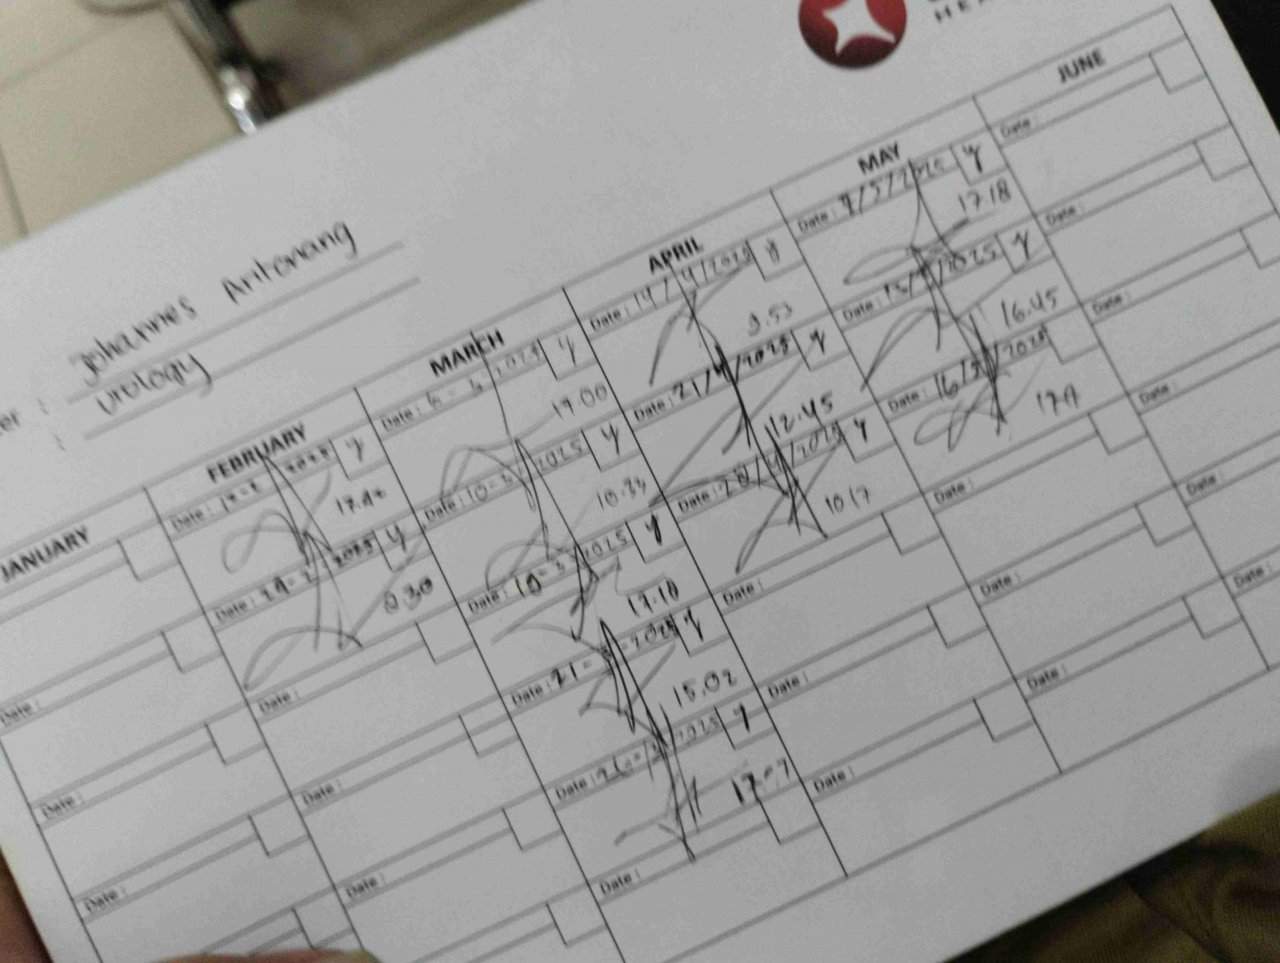 HE
er : Johannes Aritonang
: Urology
JANUARY
Date :
Date :
Date :
FEBRUARY
Date : 2025 y
17.40
Date : 2025 y
8.30
Date :
Date :
Date :
MARCH
Date : 2025 y
17.00
Date : 10-3 2025 y
10.33
Date : 10-3 2025 y
17.10
Date : 21- 2025 y
15.02
Date : 2025 y
17.07
Date :
APRIL
Date : 14/4/2025 y
9.53
Date : 21/4/2025 y
12.45
Date : 28/4/2025 y
10.17
Date :
Date :
Date :
MAY
Date : 9/5/2025 y
17.18
Date : 15/5/2025 y
16.45
Date : 16/5/2025
Date :
Date :
Date :
JUNE
Date :
Date :
Date :
Date :
Date :
Date :